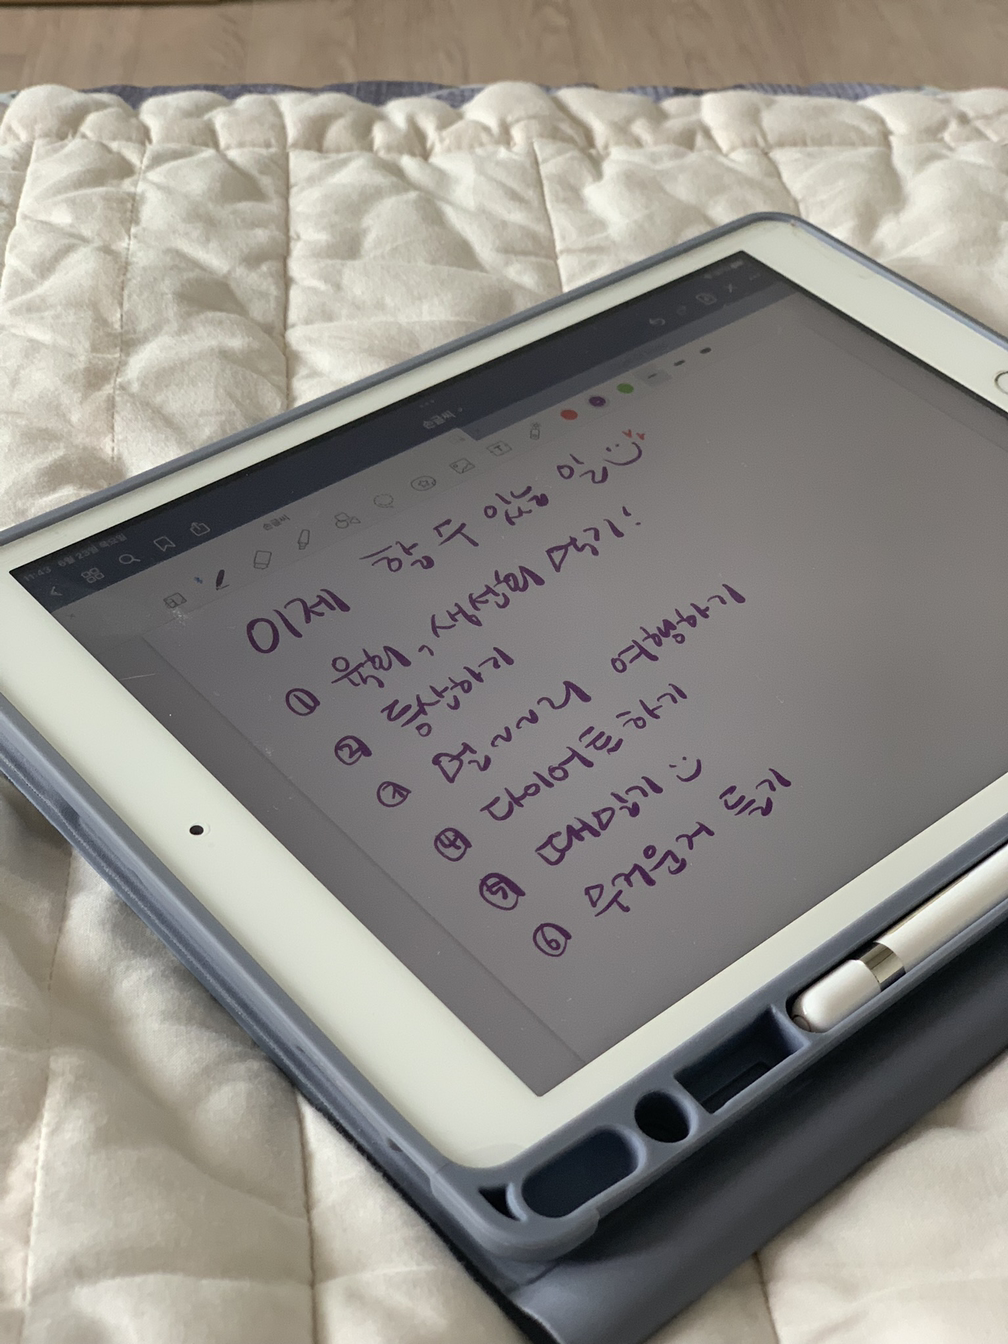 11:43 6월 23일 목요일
손글씨
손글씨
이제 할 수 있는 일
① 육회, 생선회 먹기!
② 등산하기
③ 멀~~리 여행하기
④ 다이어트하기
⑤ 때밀기
⑥ 무거운거 들기